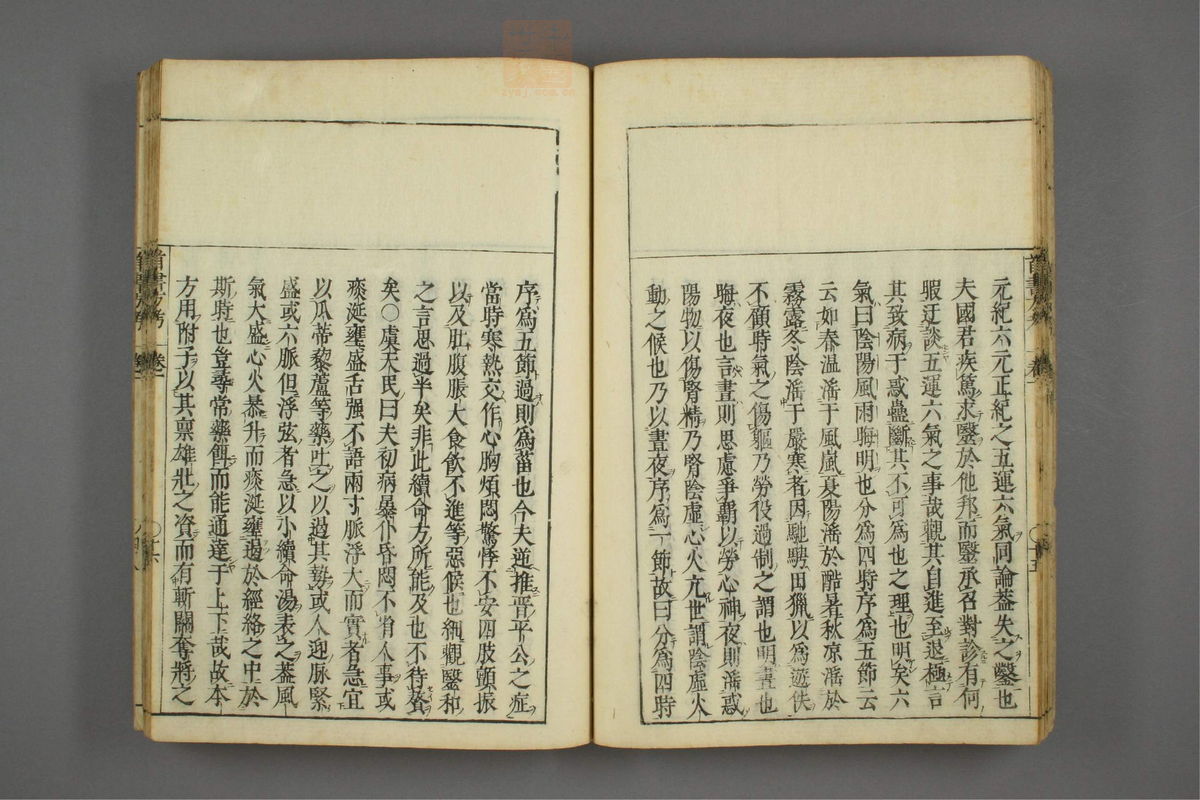 元紀六元正紀之五運六氣同論蓋失之鑿也
夫國君疾篤求醫於他邦而醫承召對診有何
暇迂談五運六氣之事哉觀其自進至退極言
其致病于惑蠱斷其不可為也之理也明矣六
氣曰陰陽風雨晦明也分為四時序為五節云
云如春温滛于風嵐夏陽滛於酷暑秋凉滛於
霧露冬陰滛于嚴寒者因馳騁田獵以為遊佚
不顧時氣之傷軀乃勞役過制之謂也明晝也
晦夜也言晝則思慮爭霸以勞心神夜則滛惑
陽物以傷腎精乃腎陰虛心火亢世謂陰虛火
動之候也乃以晝夜序為一節故曰分為四時
序為五節過則為菑也今夫逆推晋平公之症
當時寒熱交作心胸煩悶驚悸不安四肢顫振
以及肚腹脹大食飲不進等惡候也細觀醫和
之言思過半矣非此續命方所能及也不待贅
矣〇虞天民曰夫初病暴仆昏悶不省人事或
痰涎壅盛舌强不語兩寸脉浮大而實者急宜
以瓜蒂藜蘆等藥吐之以遏其勢或人迎脉緊
盛或六脈但浮弦者急以小續命湯表之蓋風
氣大盛心火暴升而痰涎壅遏於經絡之中於
斯時也豈尋常藥餌而能通達于上下哉故本
方用附子以其禀雄壯之資而有斬關奪將之
卷一
十五
卷一
十六